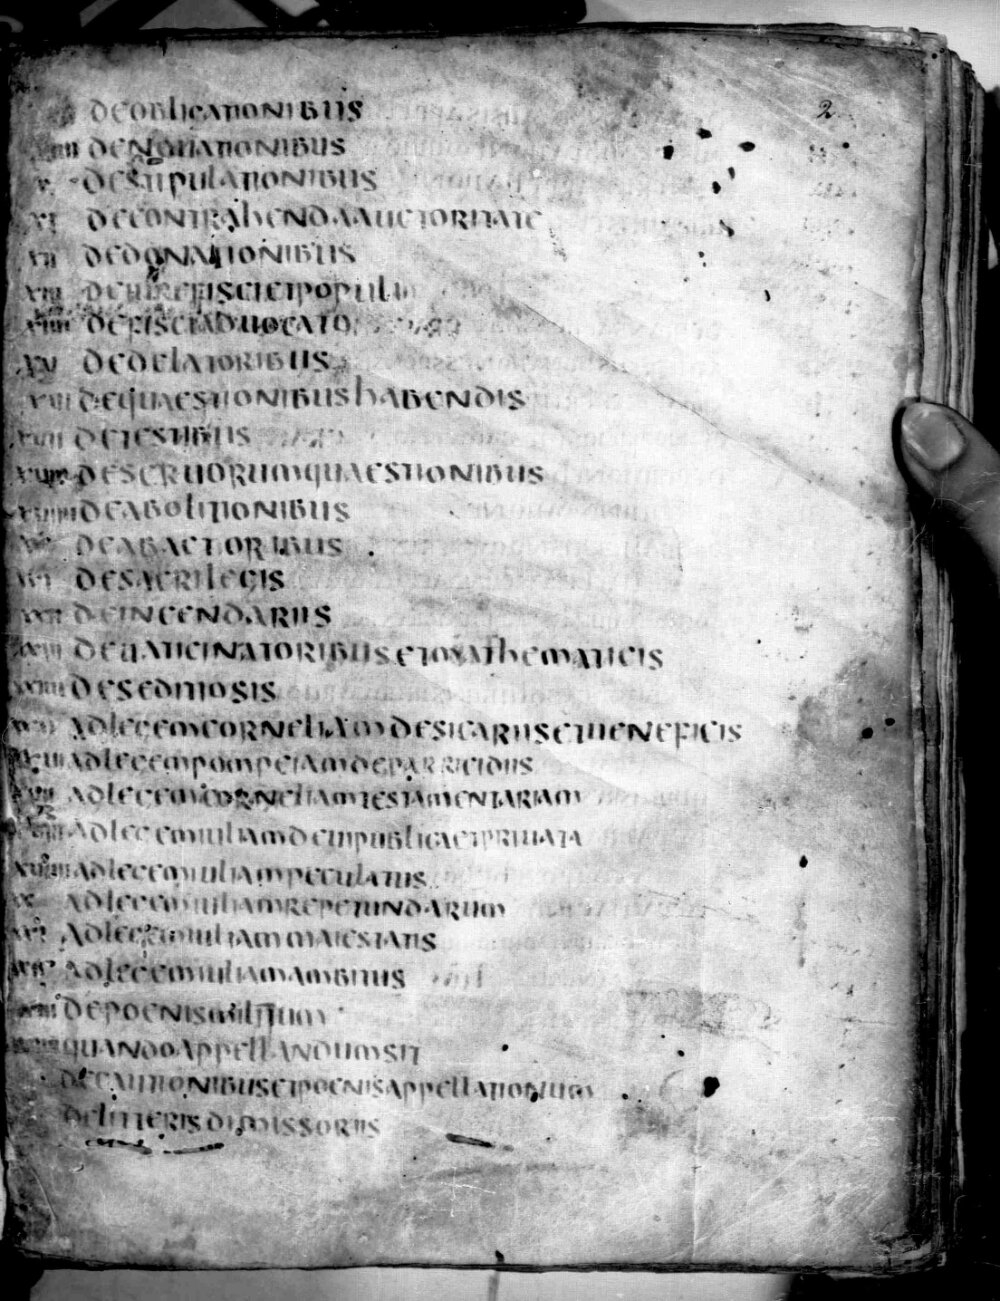 2
DEOBLIGATIONIBUS
DENOUATIONIBUS
DESTIPULATIONIBUS
VI DECONTRAHENDAAUCTORITATE
VII DEDONATIONIBUS
VIII DEIUREFISCIETPOPULI
VIIII DEFISCIADUOCATO
XV DEDELATORIBUS
DEQUAESTIONIBUSHABENDIS
DETESTIBUS
DESERUORUMQUAESTIONIBUS
DEABOLITIONIBUS
DEABACTORIBUS
DESACRILEGIS
DEINCENDARIIS
DEUATICINATORIBUSETMATHEMATICIS
DESEDITIOSIS
ADLEGEMCORNELIAMDESICARIISETUENEFICIS
ADLEGEMPOMPEIAMDEPARRICIDIIS
ADLEGEMCORNELIAMTESTAMENTARIAM
ADLEGEMIULIAMDEUIPUBLICAETPRIUATA
ADLEGEMIULIAMPECULATUS
ADLEGEMIULIAMREPETUNDARUM
ADLEGEMIULIAMMAIESTATIS
ADLEGEMIULIAMAMBITUS
DEPOENISMILITUM
QUANDOAPPELLANDUMSIT
DECAUTIONIBUSETPOENISAPPELLATIONUM
DELITTERISDIMISSORIIS